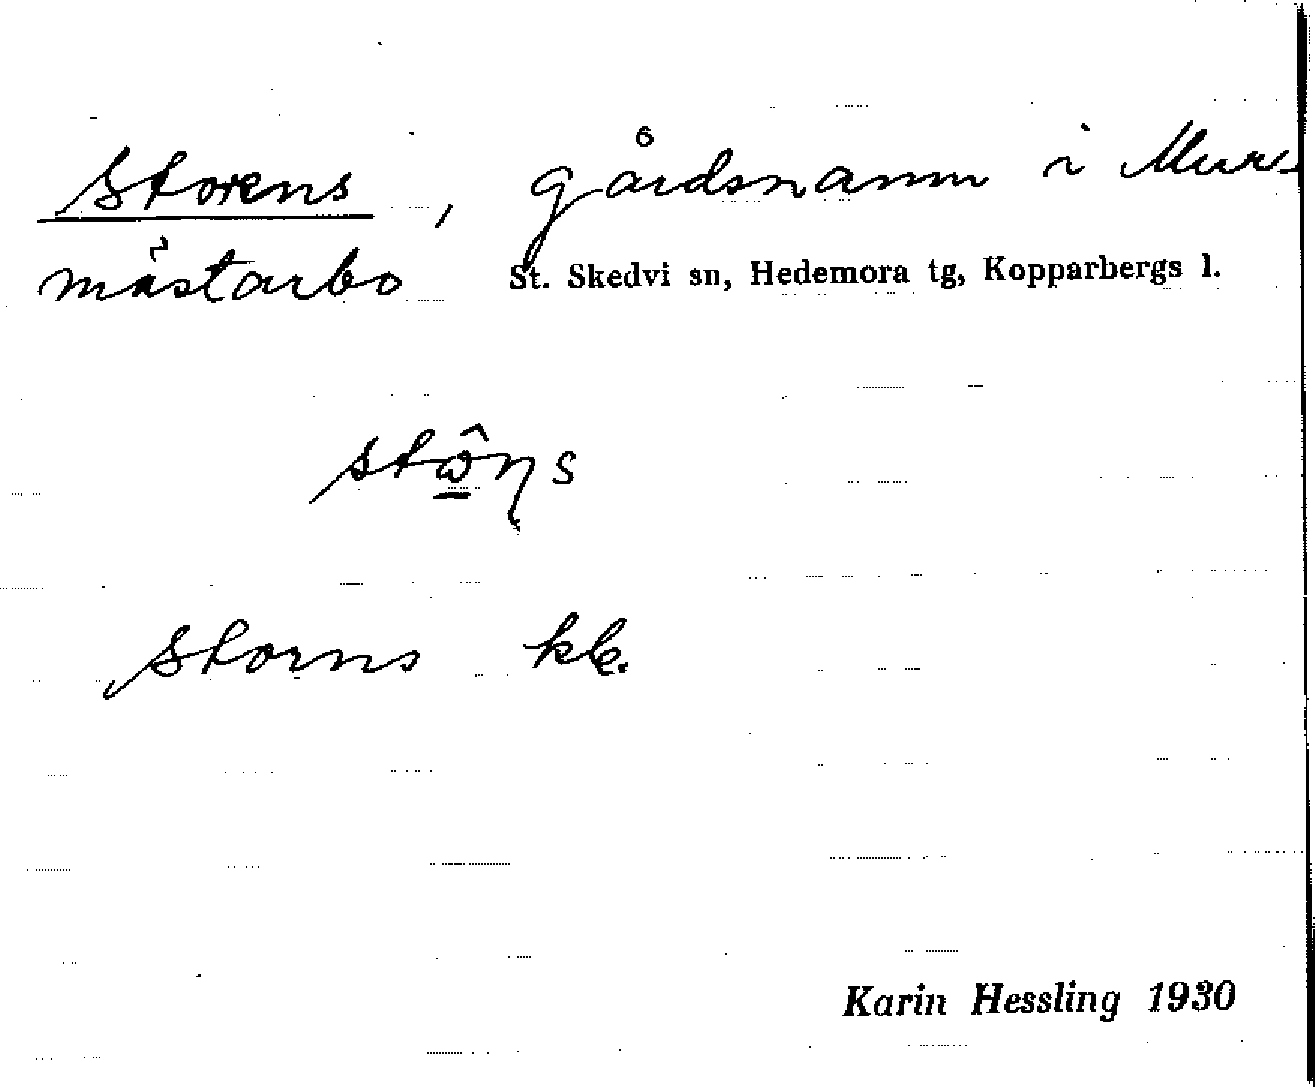 Storens, gårdsnamn i Mur-
mästarbo St. Skedvi sn, Hedemora tg, Kopparbergs l.
stω̲̂ηs
Storns kk.
Karin Hessling 1930